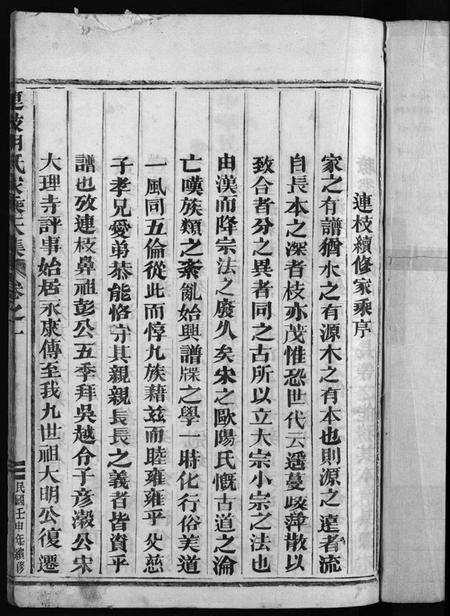 連枝續修家乘序
家之有譜猶水之有源木之有本也則源之遠者流
自長本之深者枝亦茂惟恐世代云遥蔓岐萍散以
致合者分之異者同之古所以立大宗小宗之法也
由漢而降宗法之廢久矣宋之歐陽氏慨古道之淪
亡嘆族類之紊亂始興譜牒之學一時化行俗美道
一風同五倫從此而惇九族藉兹而睦雍雍乎父慈
子孝兄愛弟恭能恪守其親親長長之義者皆資乎
譜也攷連枝鼻祖彭公五季拜吳越合子彦澂公宋
大理寺評事始居永康傳至我九世祖大明公復遷
連枝胡氏家乘大集 卷之一
民國壬申年續修